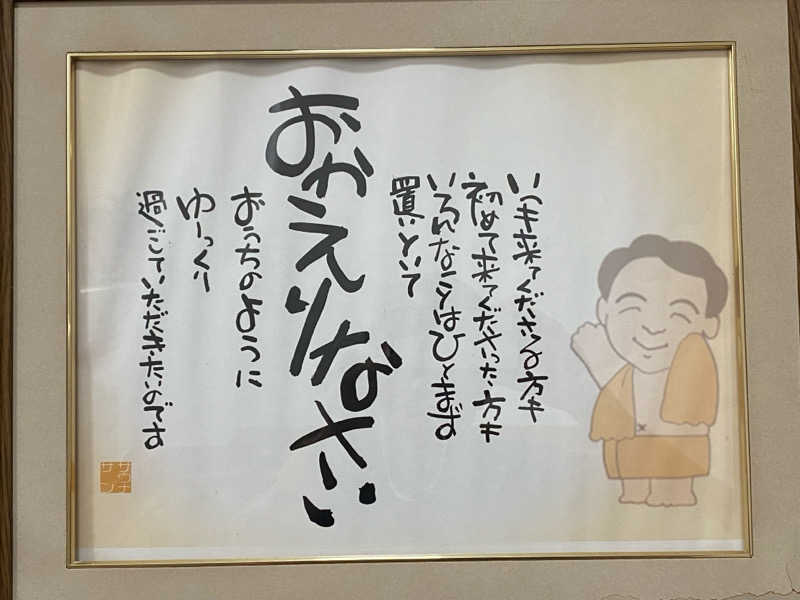 いつも来てくださる方も
初めて来てくださった方も
いろんなことはひとまず
置いといて
おかえりなさい
おうちのように
ゆーっくり
過ごしていただきたいのです
サウナ
サン